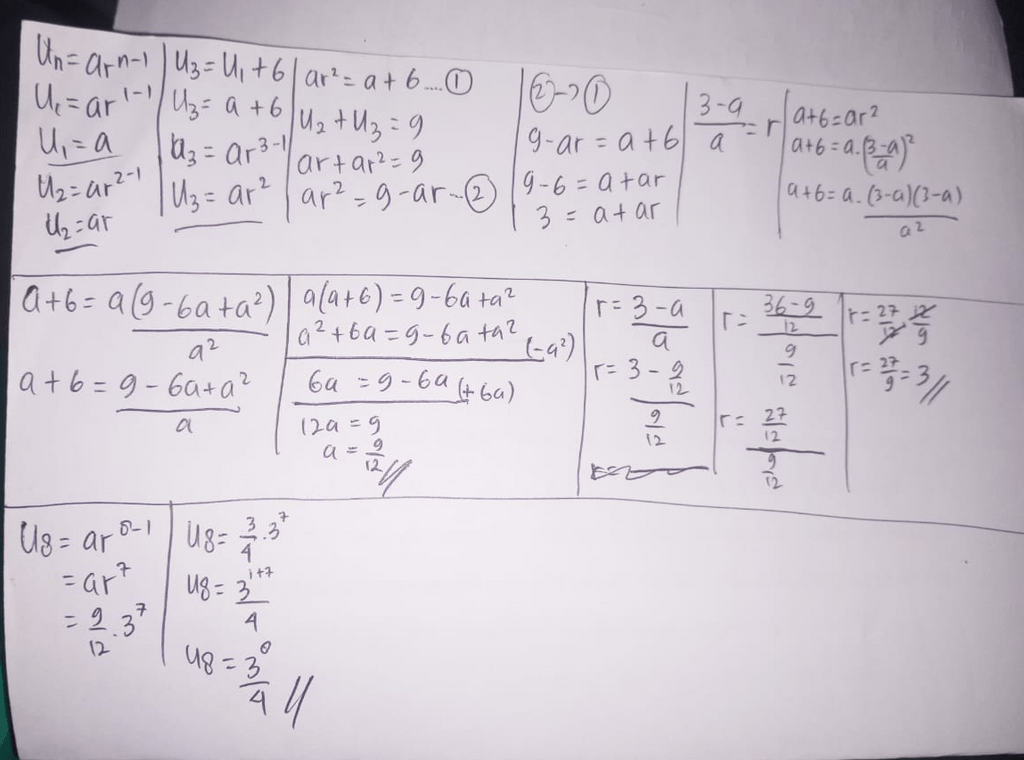 Un = ar^n-1
U1 = ar^1-1
U1 = a
U2 = ar^2-1
U2 = ar
U3 = U1 + 6
U3 = a + 6
U3 = ar^3-1
U3 = ar^2
ar^2 = a + 6 .... ①
U2 + U3 = 9
ar + ar^2 = 9
ar^2 = 9 - ar ... ②
② → ①
9 - ar = a + 6
9 - 6 = a + ar
3 = a + ar
(3-a)/a = r
a + 6 = ar^2
a + 6 = a . ((3-a)/a)^2
a + 6 = a . (3-a)(3-a)/a^2
a + 6 = a(9 - 6a + a^2)/a^2
a + 6 = (9 - 6a + a^2)/a
a(a+6) = 9 - 6a + a^2
a^2 + 6a = 9 - 6a + a^2 (-a^2)
6a = 9 - 6a (+6a)
12a = 9
a = 9/12 //
r = (3-a)/a
r = (3 - 9/12)/(9/12)
r = ((36-9)/12)/(9/12)
r = (27/12)/(9/12)
r = 27/12 12/9
r = 27/9 = 3 //
U8 = ar^8-1
= ar^7
= 9/12 . 3^7
U8 = 3/4 . 3^7
U8 = 3^1+7/4
U8 = 3^8/4 //